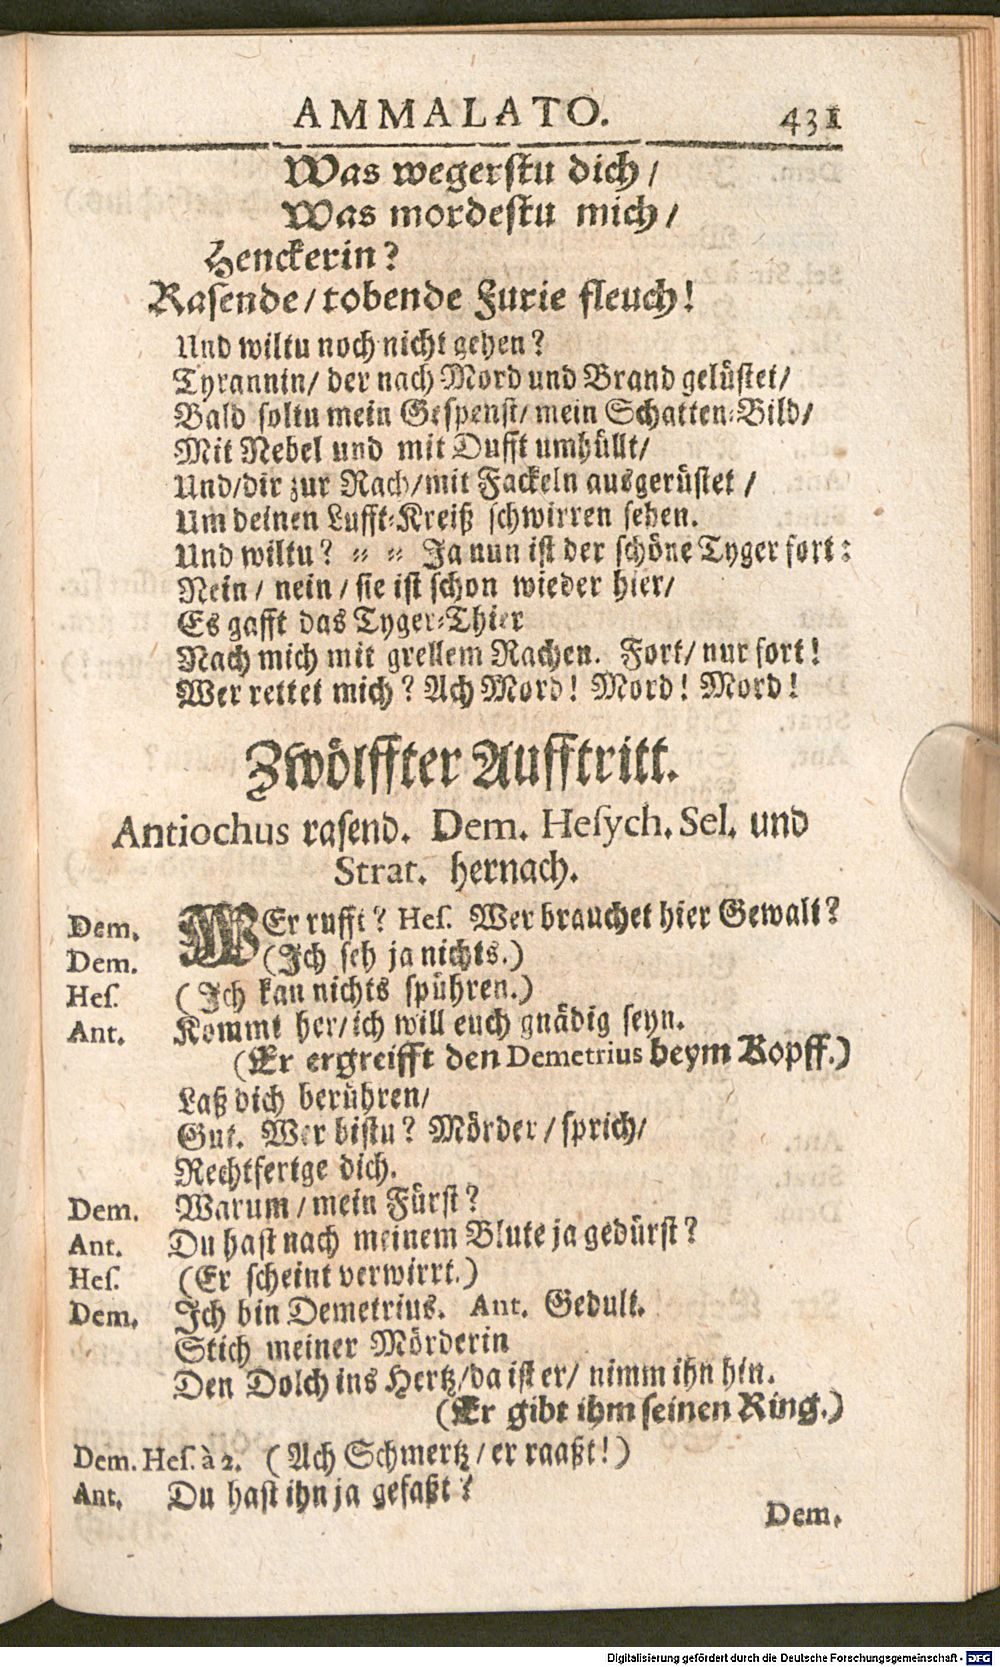 AMMALATO. 431
Was wegerstu dich /
Was mordestu mich /
Henckerin?
Rasende / tobende Furie fleuch!
Und wiltu noch nicht gehen?
Tyrannin / der nach Mord und Brand gelüstet /
Bald soltu mein Gespenst / mein Schatten-Bild /
Mit Nebel und mit Dufft umhüllt /
Und / dir zur Rach / mit Fackeln ausgerüstet /
Um deinen Lufft-Kreiß schwirren sehen.
Und wiltu? = = Ja nun ist der schöne Tyger fort:
Nein / nein / sie ist schon wieder hier /
Es gafft das Tyger-Thier
Nach mich mit grellem Rachen. Fort / nur fort!
Wer rettet mich? Ach Mord! Mord! Mord!
Zwölffter Aufftritt.
Antiochus rasend. Dem. Hesych. Sel. und
Strat. hernach.
Dem. WEr rufft? Hes. Wer brauchet hier Gewalt?
Dem. (Ich seh ja nichts.)
Hes. (Ich kan nichts spühren.)
Ant. Kommt her / ich will euch gnädig seyn.
(Er ergreifft den Demetrius beym Kopff.)
Laß dich berühren /
Gut. Wer bistu? Mörder / sprich /
Rechtfertge dich.
Dem. Warum / mein Fürst?
Ant. Du hast nach meinem Blute ja gedürst?
Hes. (Er scheint verwirrt.)
Dem. Ich bin Demetrius. Ant. Gedult.
Stich meiner Mörderin
Den Dolch ins Hertz / da ist er / nimm ihn hin.
(Er gibt ihm seinen Ring.)
Dem. Hes. à 2. (Ach Schmertz / er raaßt!)
Ant. Du hast ihn ja gefaßt?
Dem.
Digitalisierung gefördert durch die Deutsche Forschungsgemeinschaft - DFG